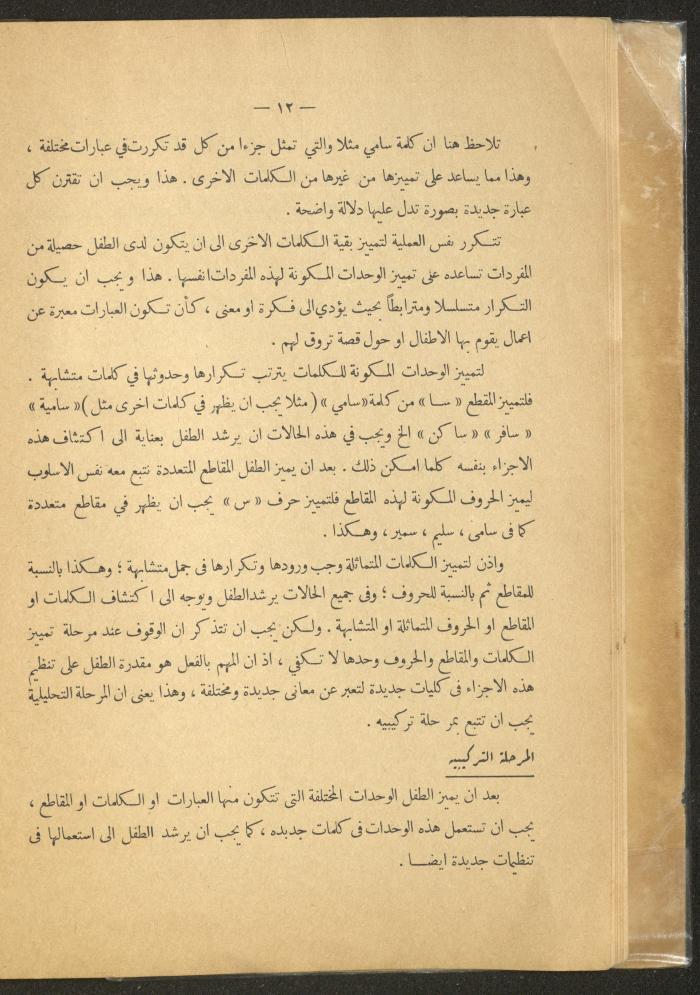 — ١٢ —
تلاحظ هنا ان كلمة سامي مثلا والتي تمثل جزءا من كل قد تكررت في عبارات مختلفة ،
وهذا مما يساعد على تمييزها من غيرها من الكلمات الاخرى . هذا ويجب ان تقترن كل
عبارة جديدة بصورة تدل عليها دلالة واضحة .
تتكرر نفس العملية لتمييز بقية الكلمات الاخرى الى ان يتكون لدى الطفل حصيلة من
المفردات تساعده على تمييز الوحدات المكونة لهذه المفردات انفسها . هذا ويجب ان يكون
التكرار متسلسلا ومترابطاً بحيث يؤدي الى فكرة او معنى ، كأن تكون العبارات معبرة عن
اعمال يقوم بها الاطفال او حول قصة تروق لهم .
لتمييز الوحدات المكونة للكلمات يترتب تكرارها وحدوثها في كلمات متشابهة .
فلتمييز المقطع « سا » من كلمة «سامي » ( مثلا يجب ان يظهر في كلمات اخرى مثل )« سامية »
« سافر » « ساكن » الخ ويجب في هذه الحالات ان يرشد الطفل بعناية الى اكتشاف هذه
الاجزاء بنفسه كلما امكن ذلك . بعد ان يميز الطفل المقاطع المتعددة نتبع معه نفس الاسلوب
ليميز الحروف المكونة لهذه المقاطع فلتمييز حرف « س » يجب ان يظهر في مقاطع متعددة
كما فى سامى ، سليم ، سمير ، وهكذا .
واذن لتمييز الكلمات المتماثلة وجب ورودها وتكرارها في جمل متشابهة ؛ وهكذا بالنسبة
للمقاطع ثم بالنسبة للحروف ؛ وفى جميع الحالات يرشد الطفل ويوجه الى اكتشاف الكلمات او
المقاطع او الحروف المتماثلة او المتشابهة . ولكن يجب ان نتذكر ان الوقوف عند مرحلة تمييز
الكلمات والمقاطع والحروف وحدها لا تكفي ، اذ ان المهم بالفعل هو مقدرة الطفل على تنظيم
هذه الاجزاء فى كليات جديدة لتعبر عن معانى جديدة ومختلفة ، وهذا يعنى ان المرحلة التحليلية
يجب ان تتبع بمرحلة تركيبيه .
المرحلة التركيبيه
بعد ان يميز الطفل الوحدات المختلفة التى تتكون منها العبارات او الكلمات او المقاطع ،
يجب ان تستعمل هذه الوحدات فى كلمات جديده ، كما يجب ان يرشد الطفل الى استعمالها فى
تنظيمات جديدة ايضا .